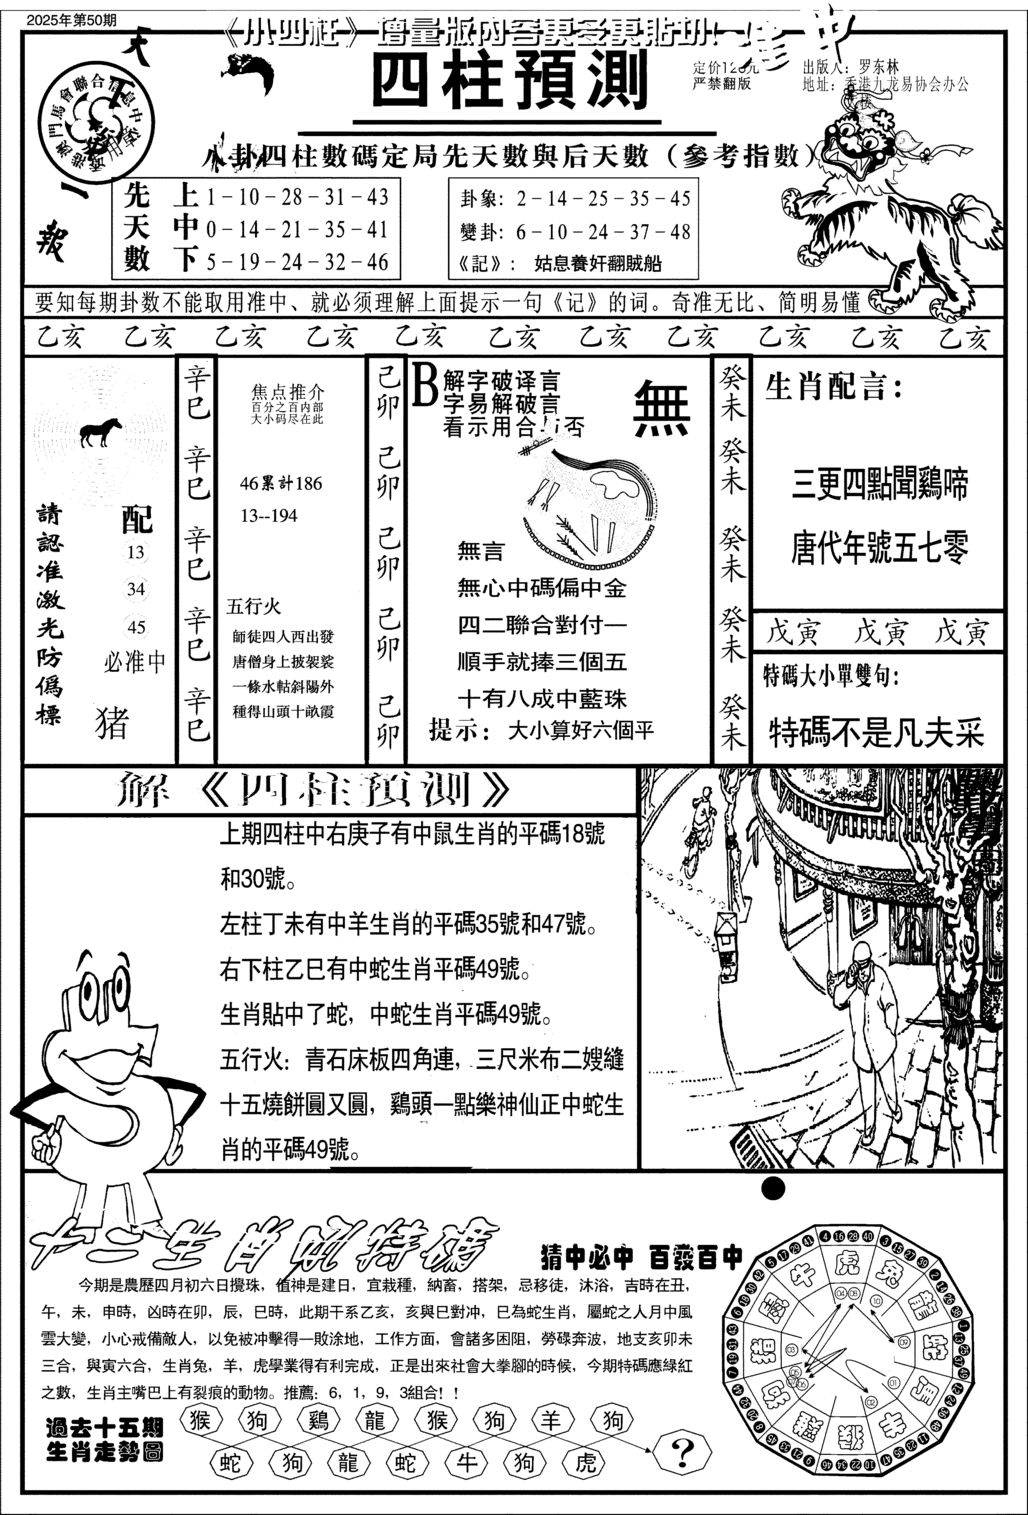 2025年第50期
《小四柱》增量版內容更多更貼切
四柱預測
定价12元
严禁翻版
出版人：罗东林
地址：香港九龙易协会办公楼
八卦四柱數碼定局先天數與后天數（參考指數）
先天數
上 1－10－28－31－43
中 0－14－21－35－41
下 5－19－24－32－46
卦象：2－14－25－35－45
變卦：6－10－24－37－48
《記》：姑息養奸翻賊船
要知每期卦数不能取用准中、就必须理解上面提示一句《记》的词。奇准无比、简明易懂
乙亥 乙亥 乙亥 乙亥 乙亥 乙亥 乙亥 乙亥 乙亥 乙亥 乙亥
請認准激光防僞標
配
13
34
45
必准中
猪
辛巳 辛巳 辛巳 辛巳 辛巳
焦点推介
百分之百内部
大小码尽在此
46累計186
13--194
五行火
師徒四人西出發
唐僧身上披袈裟
一條水帖斜陽外
種得山頭十畝霞
己卯 己卯 己卯 己卯 己卯
B 解字破译言
字易解破言
看示用合与否
無
無言
無心中碼偏中金
四二聯合對付一
順手就捧三個五
十有八成中藍珠
提示：大小算好六個平
癸未 癸未 癸未 癸未 癸未
生肖配言：
三更四點聞鷄啼
唐代年號五七零
戊寅 戊寅 戊寅
特碼大小單雙句：
特碼不是凡夫采
解《四柱預測》
上期四柱中右庚子有中鼠生肖的平碼18號
和30號。
左柱丁未有中羊生肖的平碼35號和47號。
右下柱乙巳有中蛇生肖平碼49號。
生肖貼中了蛇，中蛇生肖平碼49號。
五行火：青石床板四角連，三尺米布二嫂縫
十五燒餅圓又圓，鷄頭一點樂神仙正中蛇生
肖的平碼49號。
十二生肖配特碼
猜中必中 百發百中
今期是農歷四月初六日攪珠，值神是建日，宜栽種，納畜，搭架，忌移徒，沐浴，吉時在丑，
午，未，申時，凶時在卯，辰，巳時，此期干系乙亥，亥與巳對冲，巳為蛇生肖，屬蛇之人月中風
雲大變，小心戒備敵人，以免被冲擊得一敗涂地，工作方面，會諸多困阻，勞碌奔波，地支亥卯未
三合，與寅六合，生肖兔，羊，虎學業得有利完成，正是出來社會大拳腳的時候，今期特碼應緑紅
之數，生肖主嘴巴上有裂痕的動物。推薦：6，1，9，3組合！！
過去十五期
生肖走勢圖
猴 狗 鷄 龍 猴 狗 羊 狗
蛇 狗 龍 蛇 牛 狗 虎
？
牛 虎 兔